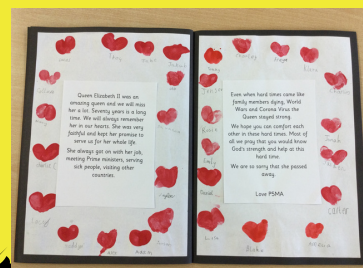 Queen Elizabeth II was an
amazing queen and we will miss
her a lot. Seventy years is a long
time. We will always remember
her in our hearts. She was very
faithful and kept her promise to
serve us for her whole life.
She always got on with her job,
meeting Prime ministers, serving
sick people, visiting other
countries.
Even when hard times came like
family members dying, World
Wars and Corona Virus the
Queen stayed strong.
We hope you can comfort each
other in these hard times. Most of
all we pray that you would know
God's strength and help at this
hard time.
We are so sorry that she passed
away.
Love PSMA